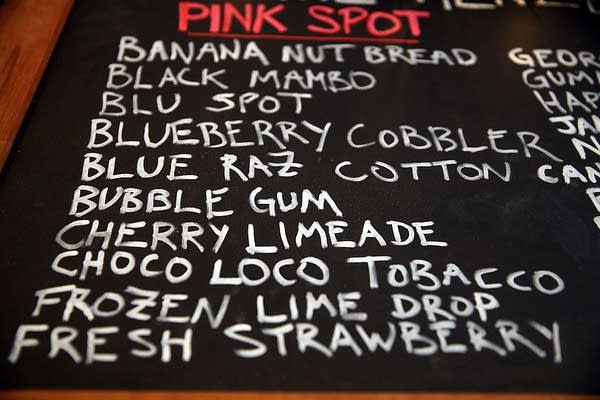 PINK SPOT
BANANA NUT BREAD
BLACK MAMBO
BLU SPOT
BLUEBERRY COBBLER
BLUE RAZ COTTON CAN
BUBBLE GUM
CHERRY LIMEADE
CHOCO LOCO TOBACCO
FROZEN LIME DROP
FRESH STRAWBERRY
GEORG
GUMM
HAP
JAM